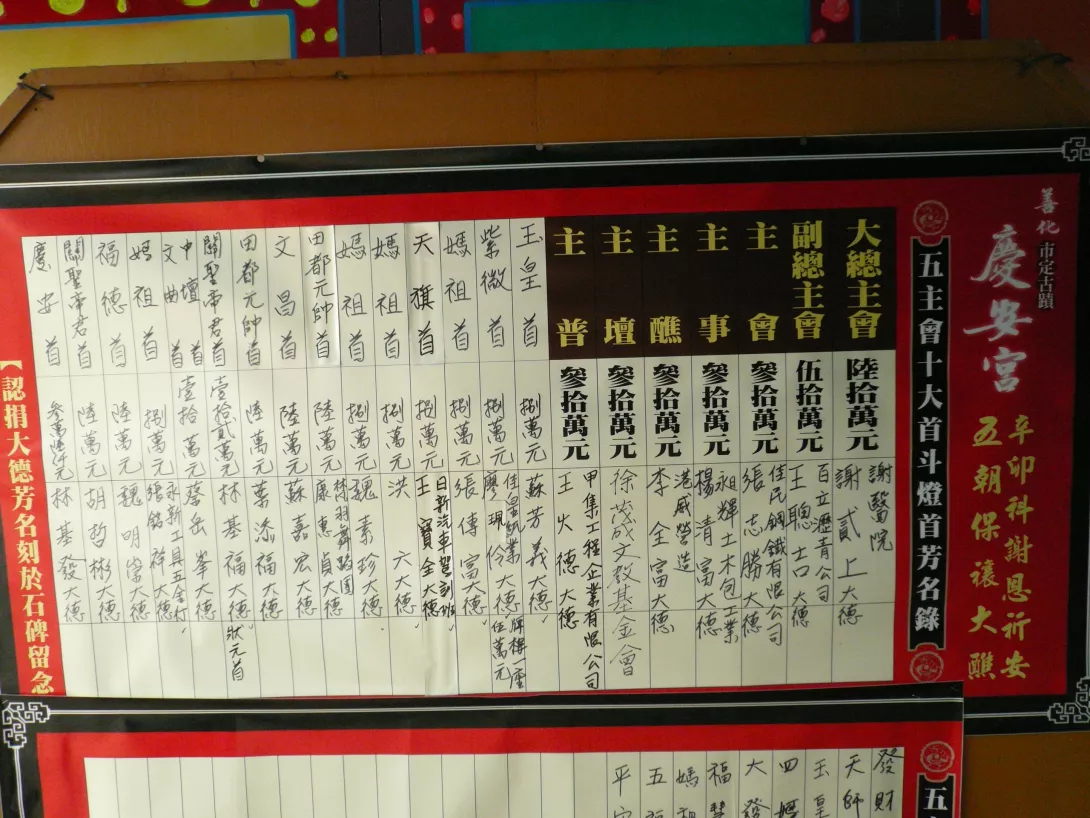 善化
市定古蹟
慶安宮
辛卯科謝恩祈安
五朝保禳大醮
五主會十大首斗燈首芳名錄
大總主會 陸拾萬元 謝醫院
謝貳上大德
副總主會 伍拾萬元 百立瀝青公司
王聰吉大德
主會 參拾萬元 佳民鋼鐵有限公司
張志勝大德
主事 參拾萬元 永輝土木包工業
楊清富大德
主醮 參拾萬元 港威營造
李全富大德
主壇 參拾萬元 徐茂成文教基金會
主普 參拾萬元 甲集工程企業有限公司
王火德大德
玉皇首 捌萬元 蘇芳義大德
紫微首 捌萬元
廖現伶大德
伍萬元
媽祖首 捌萬元 張傳富大德
天旗首 捌萬元 日新汽車駕訓班
王寶全大德
媽祖首 捌萬元 洪六大德
媽祖首 捌萬元 魏素珍大德
田都元帥首 陸萬元
康惠貞大德
文昌首 陸萬元 蘇嘉宏大德
田都元帥首 陸萬元 葉添福大德
關聖帝君首 壹拾貳萬元 林基福大德 狀元首
中壇首
文曲首 壹拾萬元 蔡岳峯大德
媽祖首 捌萬元 永新工具五金行
張銘祥大德
福德首 陸萬元 魏明崇大德
關聖帝君首 陸萬元 胡哲彬大德
慶安首 參萬陸仟元 林基發大德
【認捐大德芳名刻於石碑留念
五
發財
天師
玉皇
四媽
大發
福
媽祖
五
平安